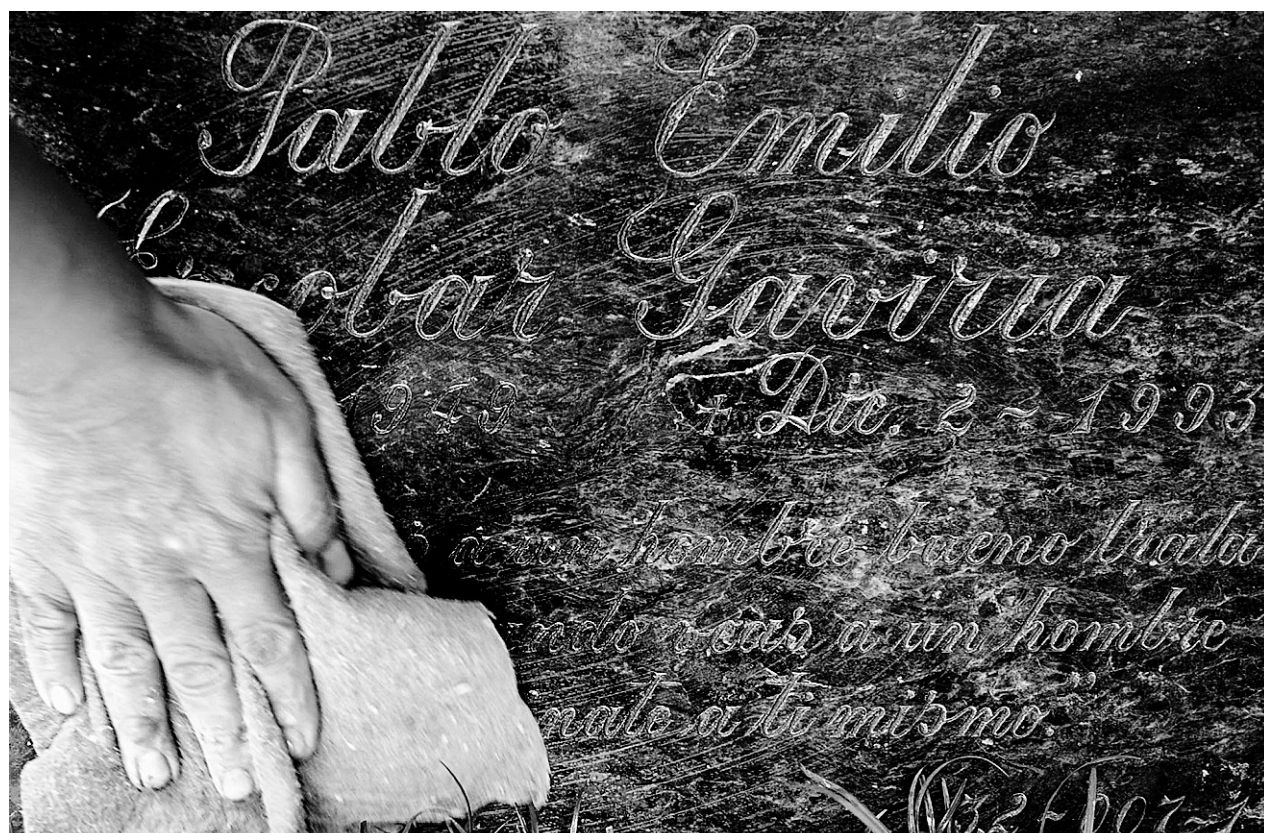 Pablo Emilio
Escobar Gaviria
1949 + Dic. 2 ~ 1993
a un hombre bueno trata
veas a un hombre
a ti mismo."